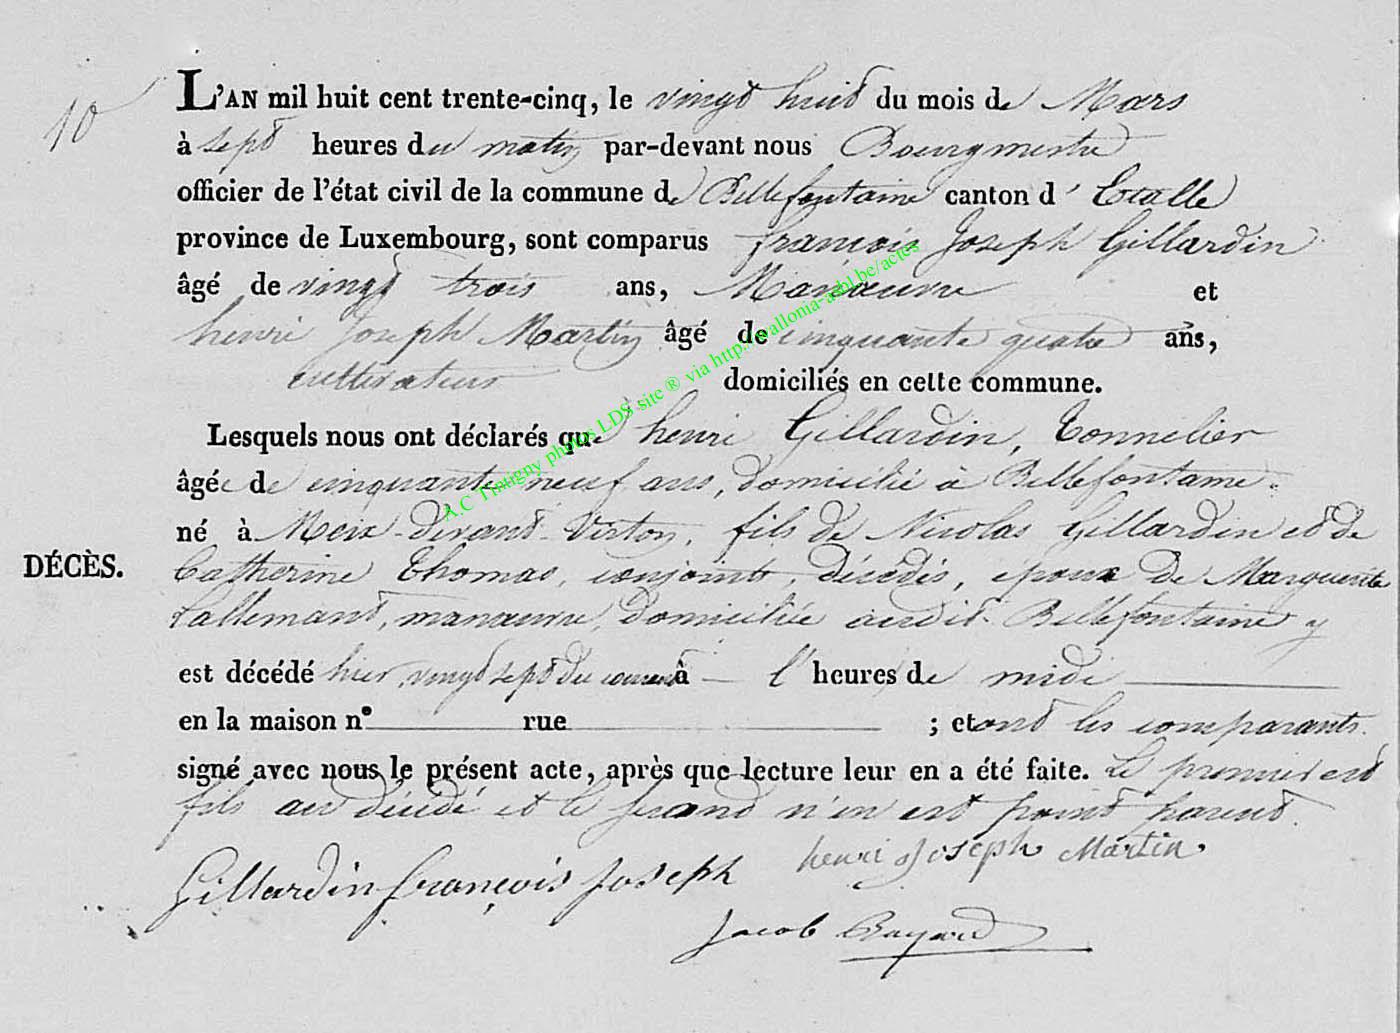 10
L'AN mil huit cent trente-cinq, le vingt huit du mois de Mars
à sept heures du matin par-devant nous Bourgmestre
officier de l'état civil de la commune de Bellefontaine canton d' Etalle
province de Luxembourg, sont comparus françois Joseph Gillardin
âgé de vingt trois ans, Manœuvre et
henri Joseph Martin âgé de cinquante quatre ans,
cultivateur domiciliés en cette commune.
Lesquels nous ont déclarés que henri Gillardin, Tonnelier
âgée de cinquante neuf ans, domicilié à Bellefontaine
né à Meix-devant-Virton, fils de Nicolas Gillardin et de
DÉCÈS.
Catherine Thomas, conjoints, décédés, époux de Marguerite
Lallemand, manœuvre, domiciliée audit Bellefontaine y
est décédé hier, vingt sept du courant à l' heures de midi
en la maison n° rue ; et ont les comparants
signé avec nous le présent acte, après que lecture leur en a été faite. Le premier est
fils au décédé et le second n'en est point parent.
Gillardin françois Joseph henri Joseph Martin.
Jacob Bayard
A.C Tintigny photos LDS site ® via http://wallonia-asbl.be/actes